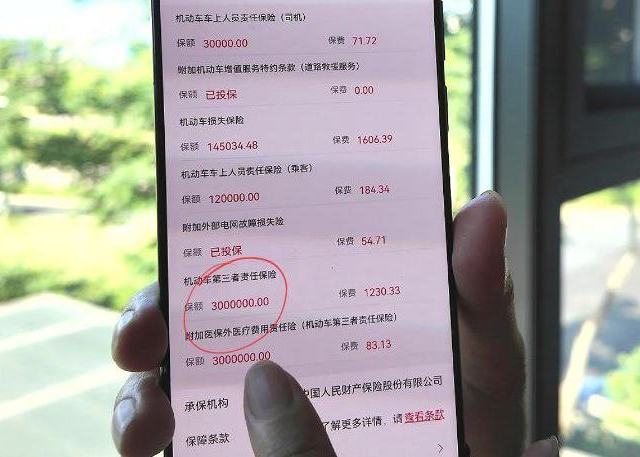 机动车车上人员责任保险（司机）
保额 30000.00 保费 71.72
附加机动车增值服务特约条款（道路救援服务）
保额 已投保 保费 0.00
机动车损失保险
保额 145034.48 保费 1606.39
机动车车上人员责任保险（乘客）
保额 120000.00 保费 184.34
附加外部电网故障损失险
保额 已投保 保费 54.71
机动车第三者责任保险
保额 3000000.00 保费 1230.33
附加医保外医疗费用责任险（机动车第三者责任保险）
保额 3000000.00 保费 83.13
承保机构 中国人民财产保险股份有限公司
了解更多详情，请查看条款
保障条款